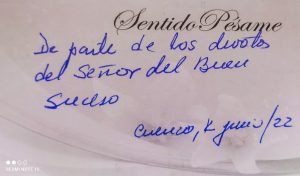 Sentido Pésame
De parte de los devotos
del Señor del Buen
suceso
Cuenca, junio/22